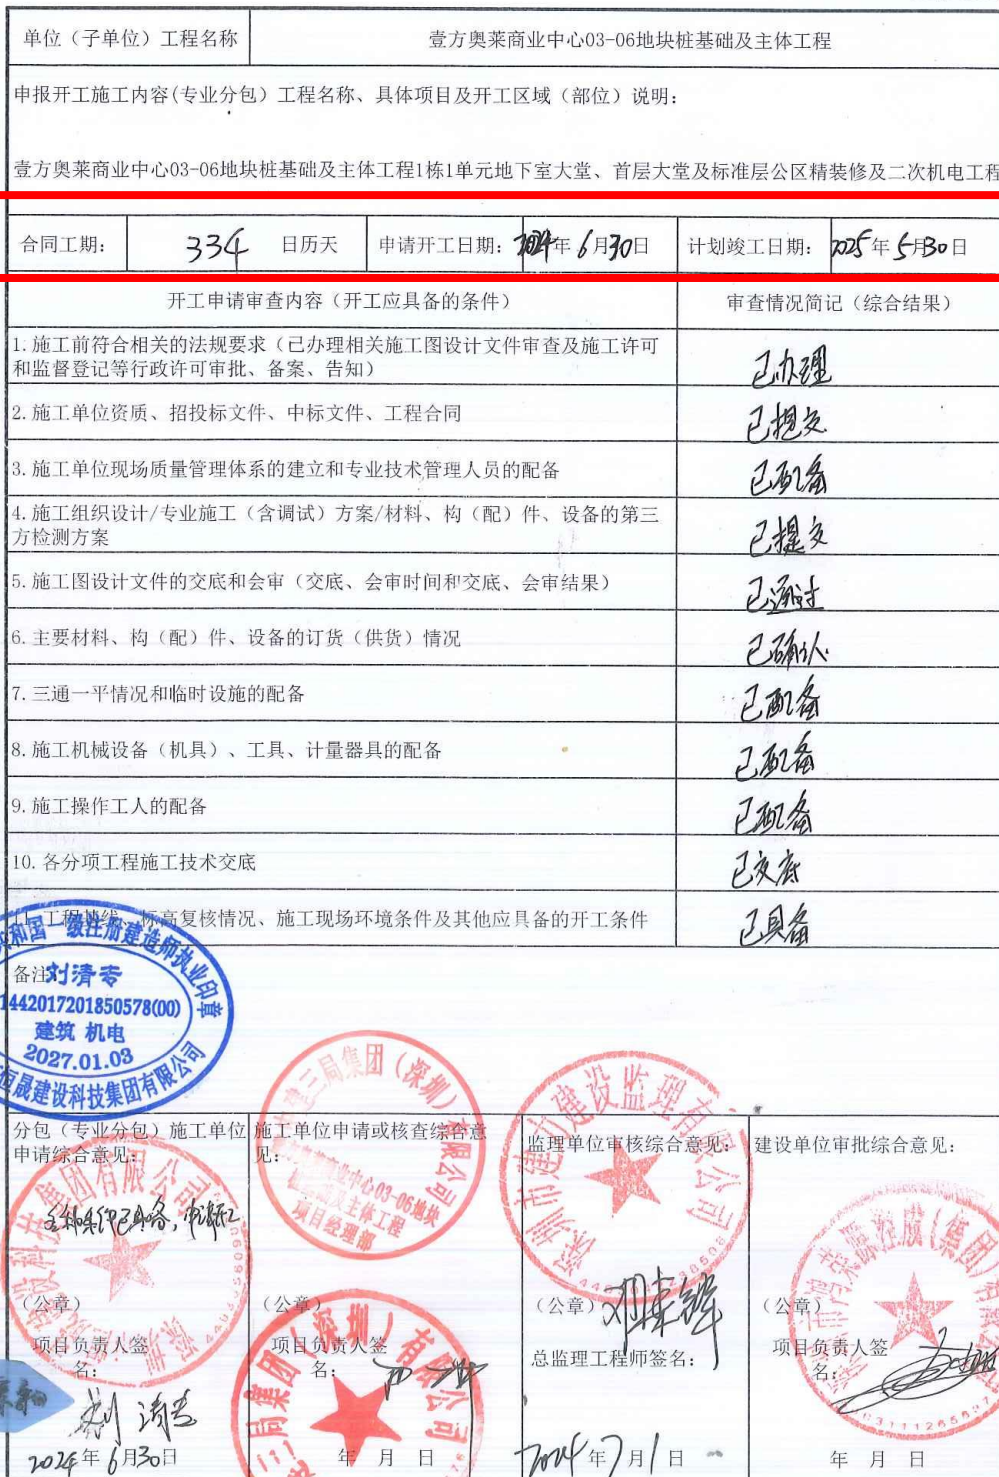 单位（子单位）工程名称 壹方奥莱商业中心03-06地块桩基础及主体工程
申报开工施工内容(专业分包）工程名称、具体项目及开工区域（部位）说明：
壹方奥莱商业中心03-06地块桩基础及主体工程1栋1单元地下室大堂、首层大堂及标准层公区精装修及二次机电工程
合同工期： 334 日历天 申请开工日期： 2024年6月30日 计划竣工日期： 2025年5月30日
开工申请审查内容（开工应具备的条件） 审查情况简记（综合结果）
1.施工前符合相关的法规要求（已办理相关施工图设计文件审查及施工许可
和监督登记等行政许可审批、备案、告知） 已办理
2.施工单位资质、招投标文件、中标文件、工程合同 已提交
3.施工单位现场质量管理体系的建立和专业技术管理人员的配备 已配备
4.施工组织设计/专业施工（含调试）方案/材料、构（配）件、设备的第三
方检测方案 已提交
5.施工图设计文件的交底和会审（交底、会审时间和交底、会审结果） 已通过
6.主要材料、构（配）件、设备的订货（供货）情况 已确认
7.三通一平情况和临时设施的配备 已配备
8.施工机械设备（机具）、工具、计量器具的配备 已配备
9.施工操作工人的配备 已配备
10.各分项工程施工技术交底 已交底
11.工程 标高复核情况、施工现场环境条件及其他应具备的开工条件 已具备
和国一级注册建造师执业印章
备注
刘清专
1442017201850578(00)
建筑 机电
2027.01.03
恒晟建设科技集团有限公司
分包（专业分包）施工单位
申请综合意见：
施工单位申请或核查综合意
见：
监理单位审核综合意见：
建设单位审批综合意见：
三局集团（深圳）有限公司
商业中心03-06地块
主体工程
项目经理部
深圳市建设监理有限公司
科技集团有限公司
条件已具备，申请开工
（公章） （公章） （公章） （公章）
项目负责人签
名：
项目负责人签
名：
总监理工程师签名：
项目负责人签
名：
刘清专
局集团（深圳）有限公司
2024年6月30日 年 月 日 2024年7月1日 年 月 日